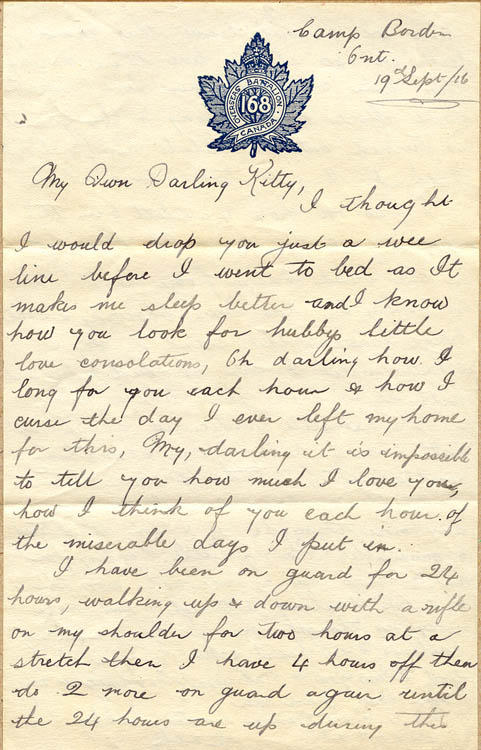 Camp Borden
Ont.
19th Sept/16
OVERSEAS BATTALION
168
CANADA
My Own Darling Kitty,
I thought
I would drop you just a wee
line before I went to bed as It
makes me sleep better and I know
how you look for hubbys little
love consolations, Oh darling how I
long for you each hour & how I
curse the day I ever left my home
for this, My, darling it is impossible
to tell you how much I love you,
how I think of you each hour of
the miserable days I put in.
I have been on guard for 24
hours, walking up & down with a rifle
on my shoulder for two hours at a
stretch then I have 4 hours off then
do 2 more on guard again until
the 24 hours are up during this